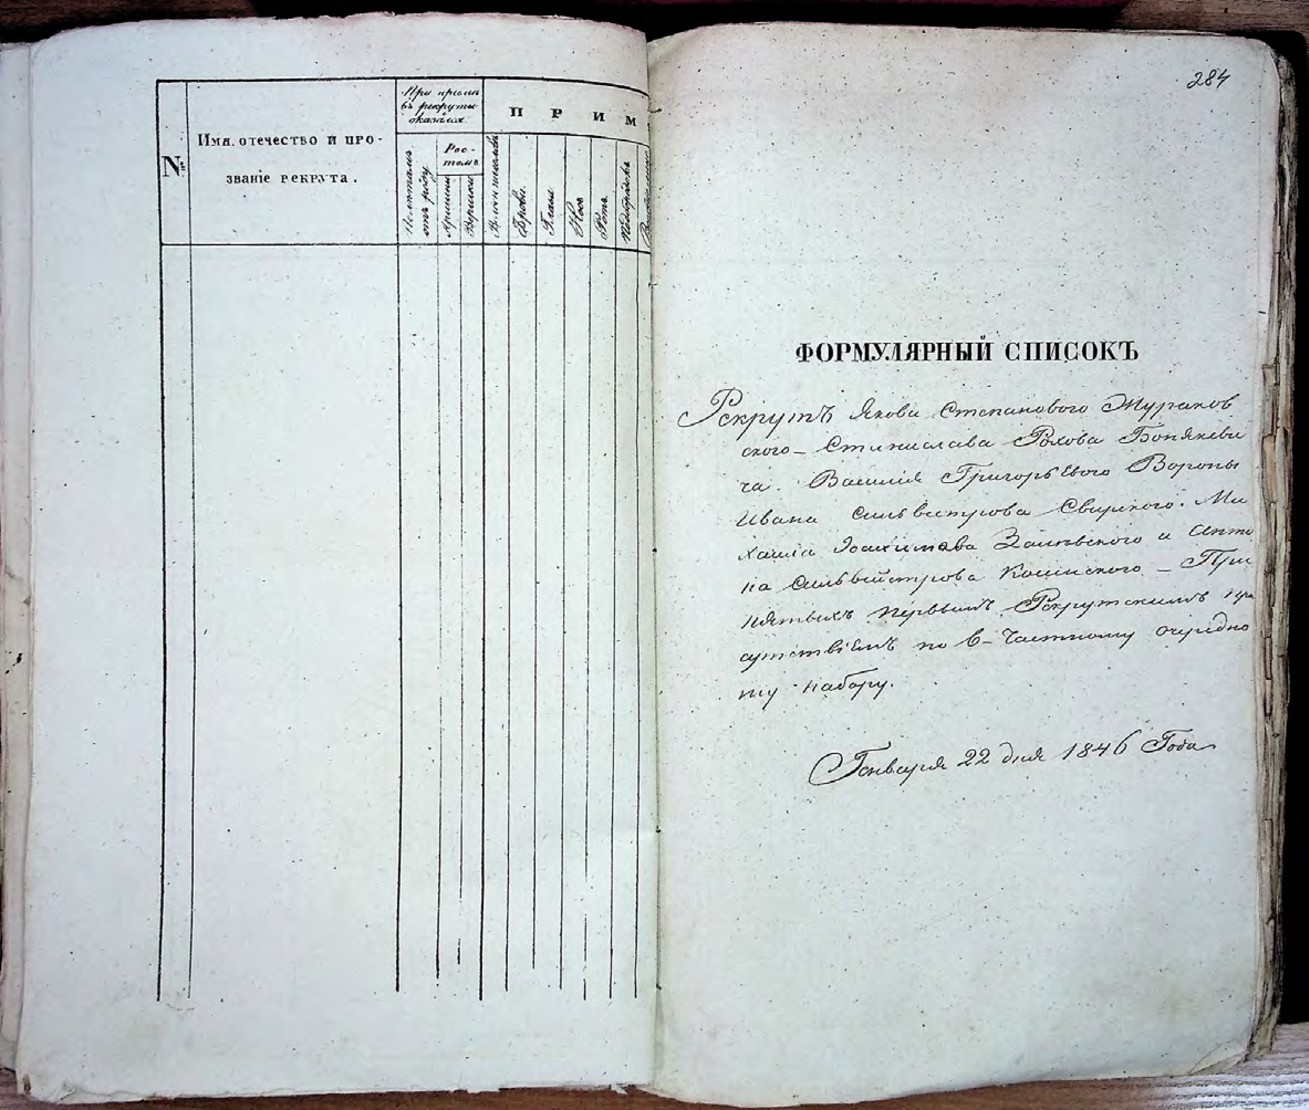 №
Имя, отечество и про-
званіе рекрута.
При пріемѣ
въ рекруты
оказался
Рос-
томъ
отъ роду
Аршинъ
Вершки
П Р И М
Брови.
Глаза
Носъ
Ротъ
Подбородокъ
284
ФОРМУЛЯРНЫЙ СПИСОКЪ
Рекрутъ Якова Степанового Жураков
ского – Станислава Рохова Бонякеви
ча. Василія Григорьевого Вороны
Ивана Сильвестрова Свирского. Ми
хаила Іоахимова Залевского и Анто
на Сильвестрова Косинского – При
нятыхъ первымъ Рекрутскимъ при
сутствіемъ по 6– Частному очередно
му набору.
Генваря 22 дня 1846 Года